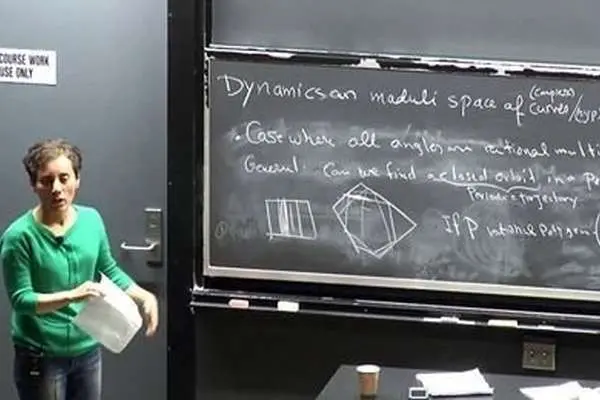 COURSE WORK
USE ONLY
Dynamics on moduli space of (complex) curves/hyp
• Case where all angles are rational multi
General. Can we find a closed orbit in a Po
Periodic trajectory
If P rational Polygon (